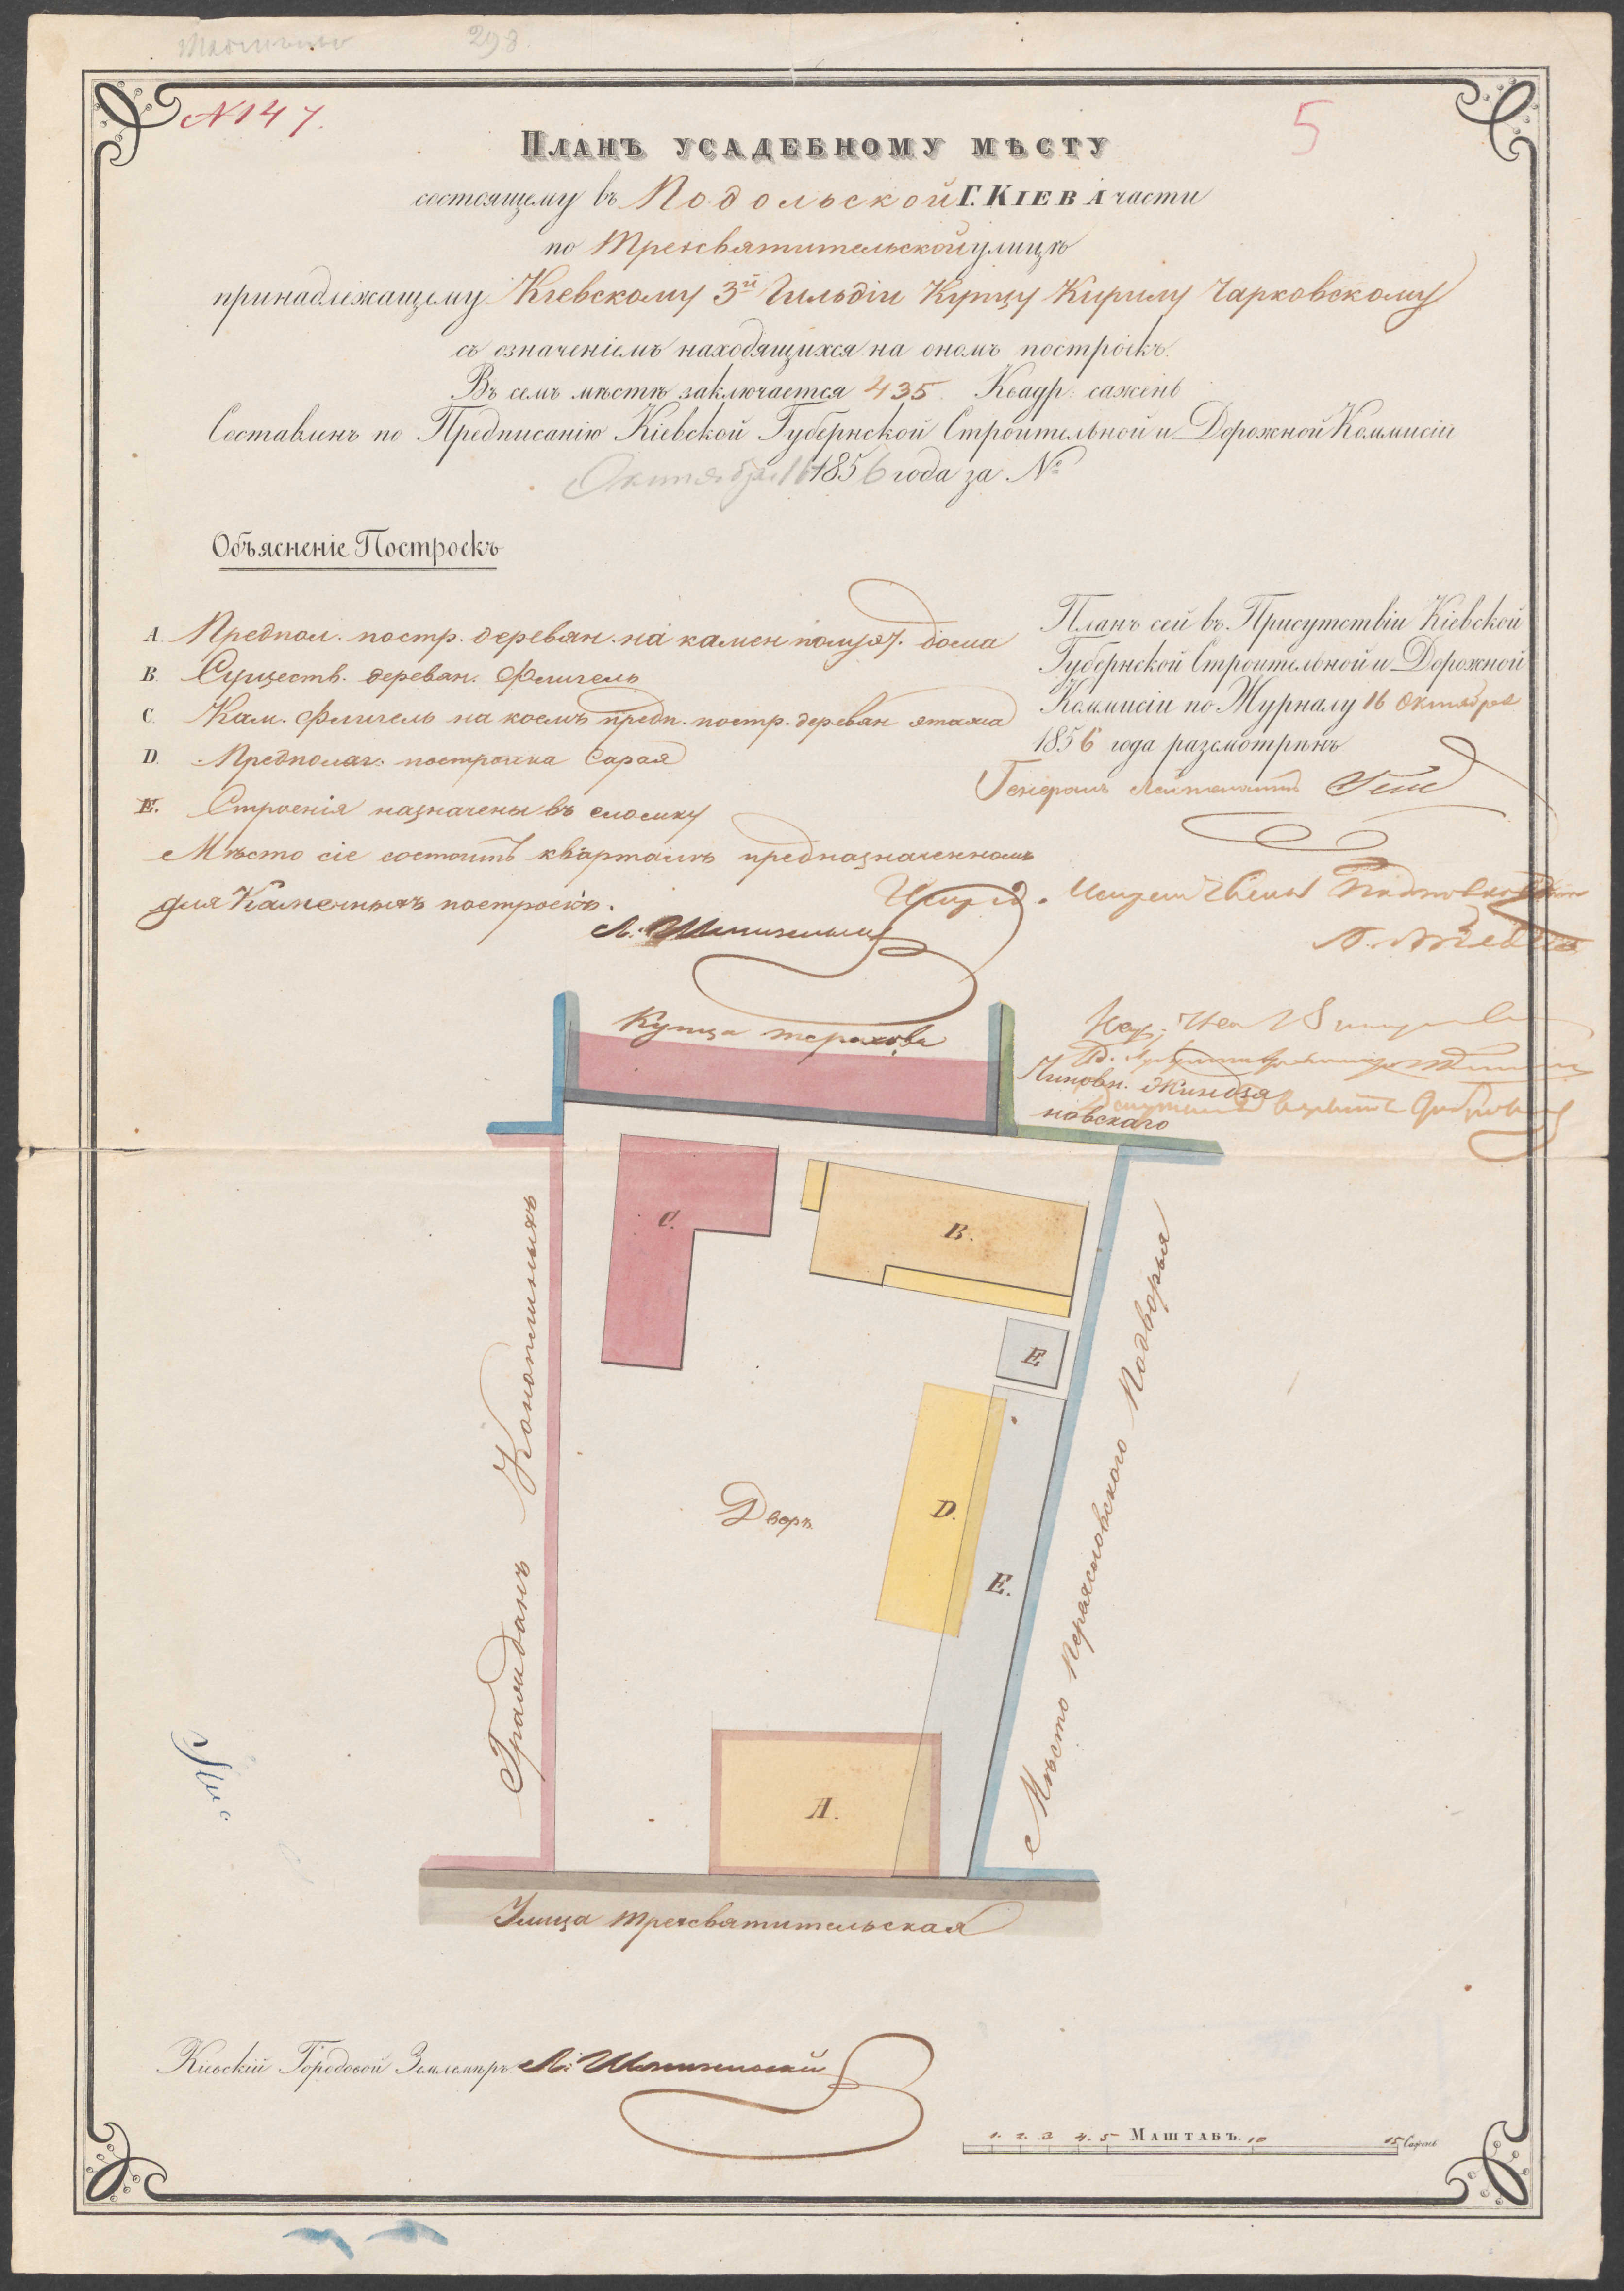 298
№ 147.
5
Планъ усадебному мѣсту
состоящему въ Подольской Г. Кіева части
по Трехсвятительской улицѣ
принадлежащему Кіевскому 3й Гильдіи Купцу Кирилу Чарковскому
съ означеніемъ находящихся на ономъ построекъ.
Въ семъ мѣстѣ заключается 435. Квадр: сажень
Составленъ по Предписанію Кіевской Губернской Строительной и Дорожной Коммисіи
Октября 16 1856 года за №
Объясненіе Построекъ
А. Предпол. постр. деревян. на камен полуэт. дома
В. Существ. деревян. Флигель
С. Кам. флигель на коемъ предп. постр. деревян этажа
D. Предполаг. постройка Сарая
Е. Строенія назначены въ сломку
Мѣсто сіе состоитъ кварталѣ предназначенномъ
для Каменныхъ построекъ.
Планъ сей въ Присутствіи Кіевской
Губернской Строительной и Дорожной
Коммисіи по Журналу 16 Октября
1856 года разсмотрѣнъ
Генералъ Лейтенантъ
Купца Терехова
Чиновн. Жиндзя
новскаго
С.
В.
Е
D.
Дворъ
Е.
А.
Гражданъ Коноплиныхъ
Мѣсто Переясловскаго Подворья
Улица Трехсвятительская
Кіевскій Городовой Землемѣръ Л:
1. 2. 3 4. 5 Маштабъ. 10 15 Сажень